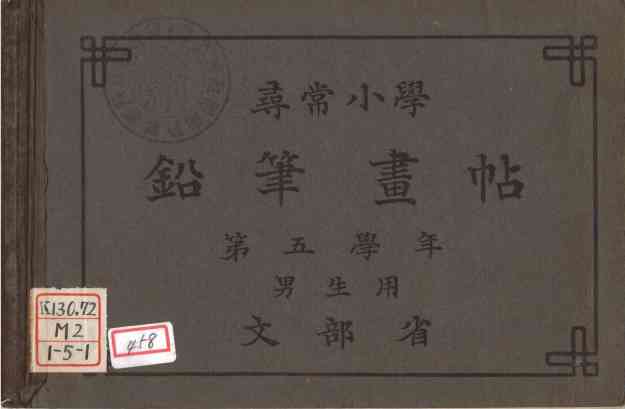 尋常小學
鉛筆畫帖
第五學年
男生用
文部省
K130.72
M2
1-5-1
458